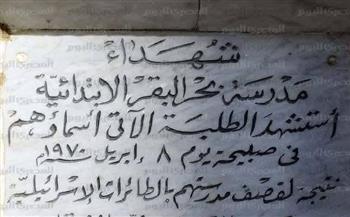 شهداء
مدرسة بحر البقر الابتدائية
استشهد الطلبة الآتى أسماؤهم
فى صبيحة يوم ٨ إبريل ١٩٧٠
نتيجة لقصف مدرستهم بالطائرات الإسرائيلية